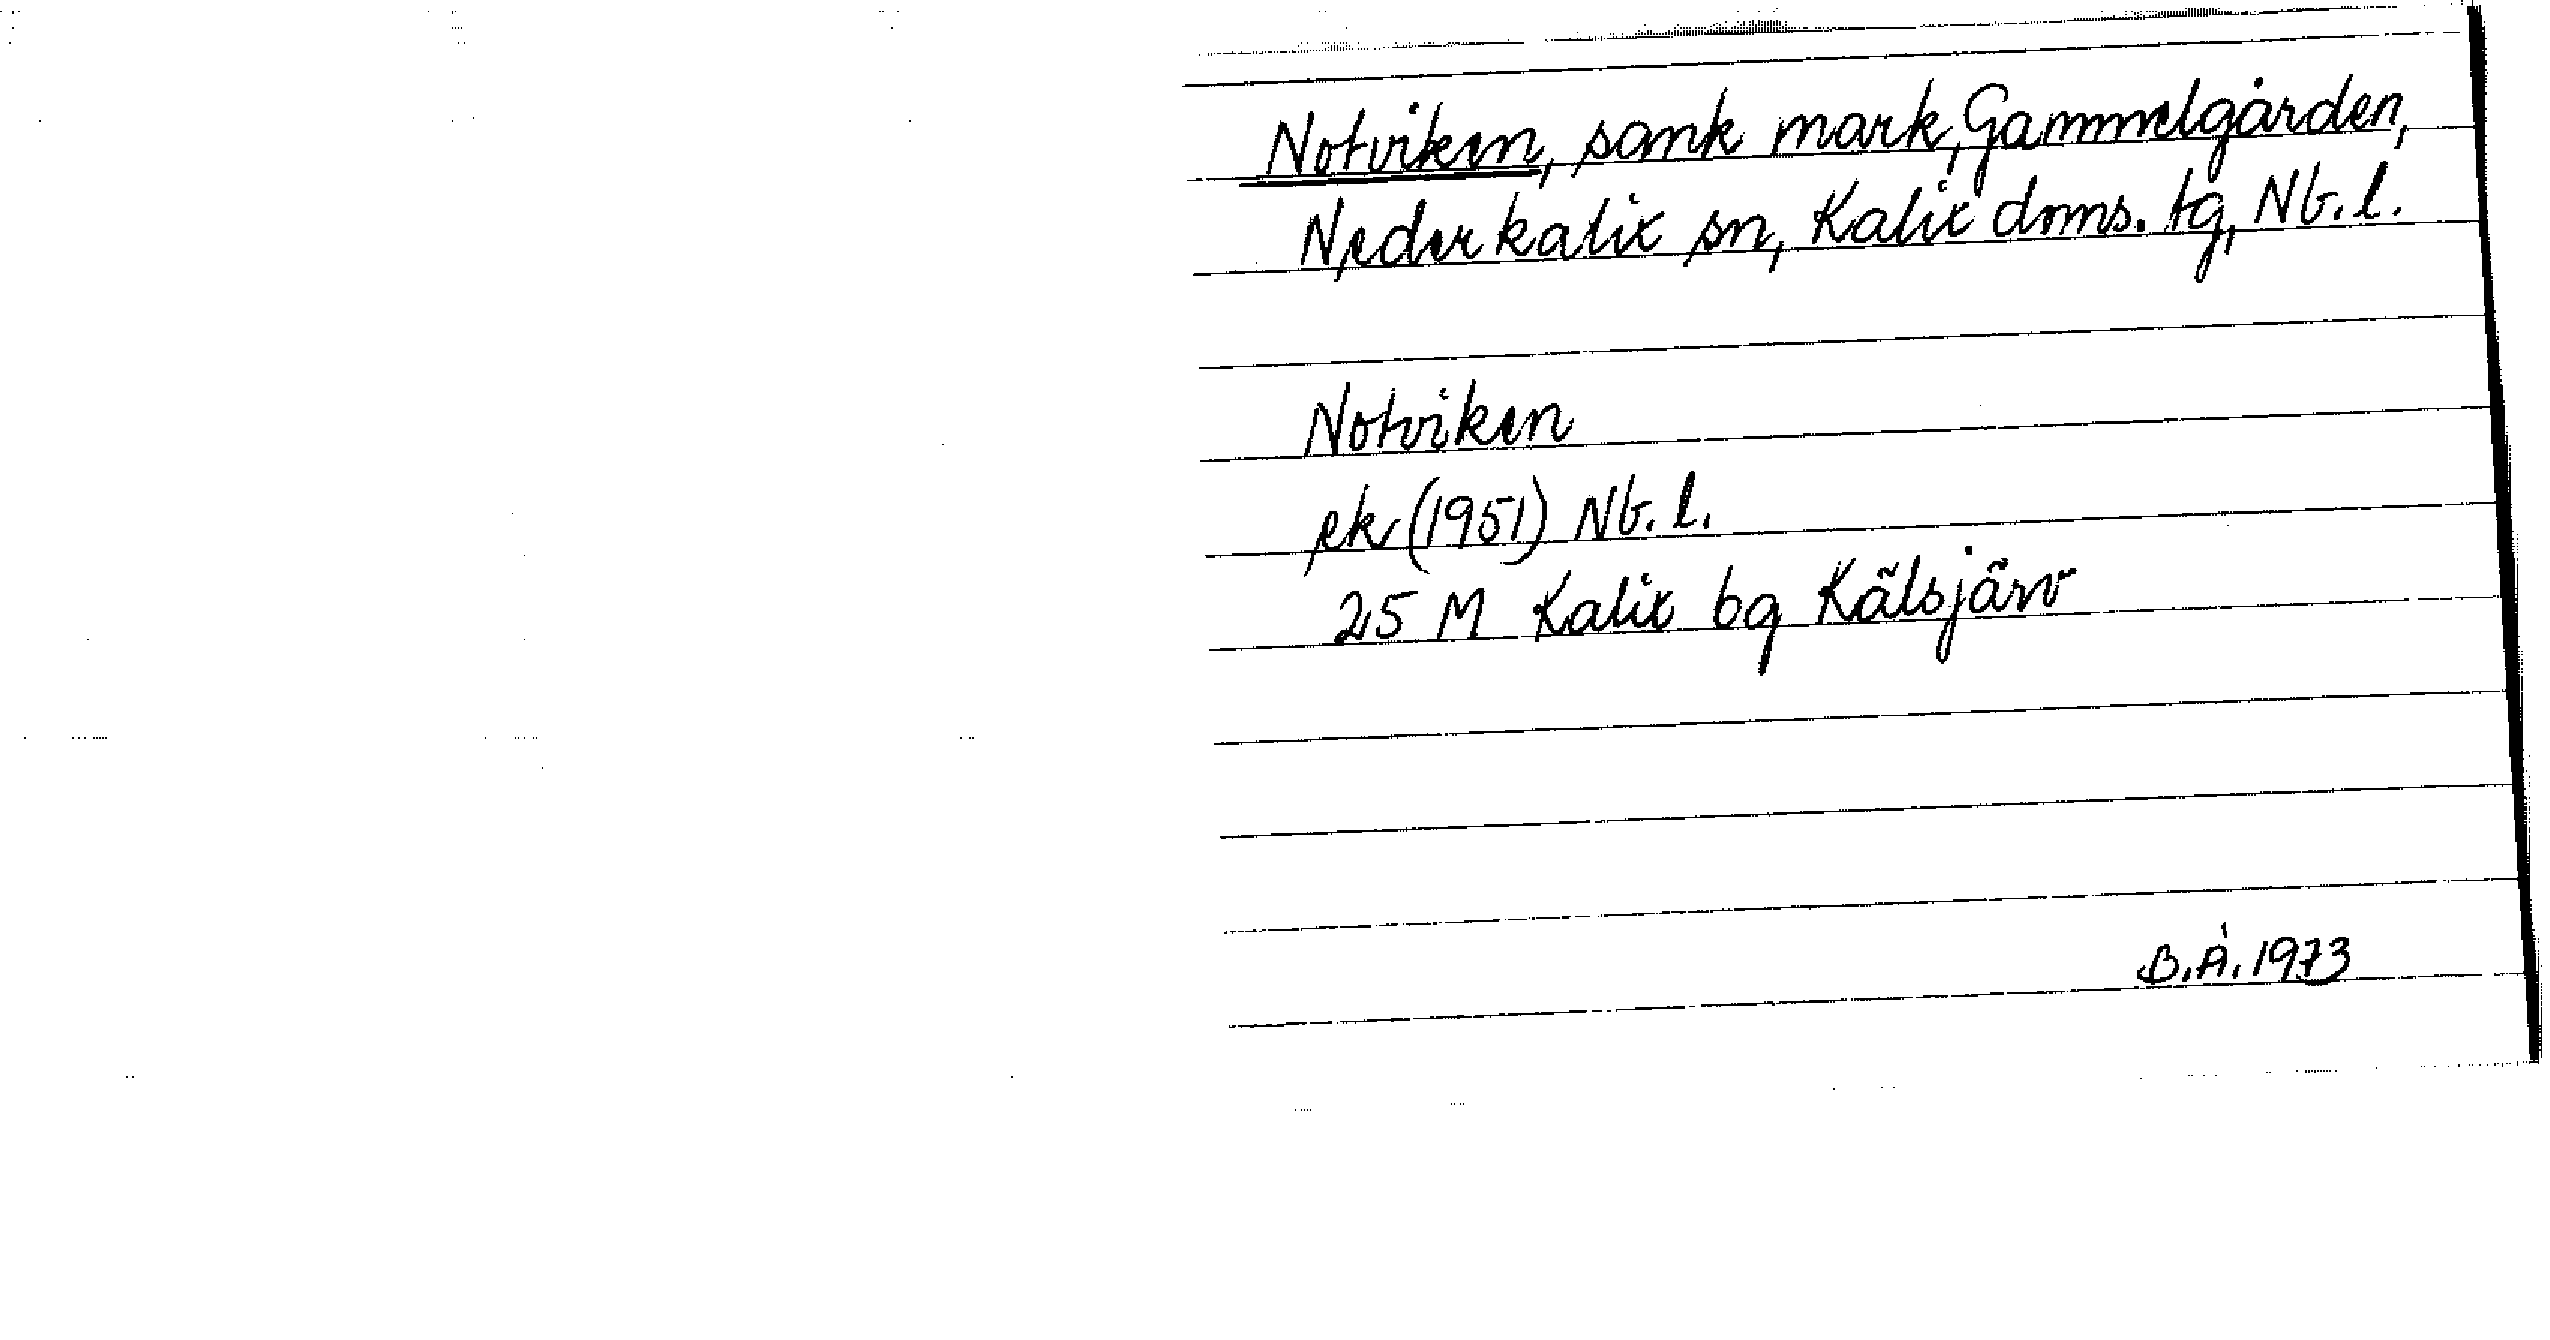 Notviken, sank mark, Gammelgården,
Nederkalix sn, Kalix doms. tg, Nb. l.
Notviken
ek (1951) Nb. l.
25 M Kalix 6g Kälsjärv
B.Å. 1973